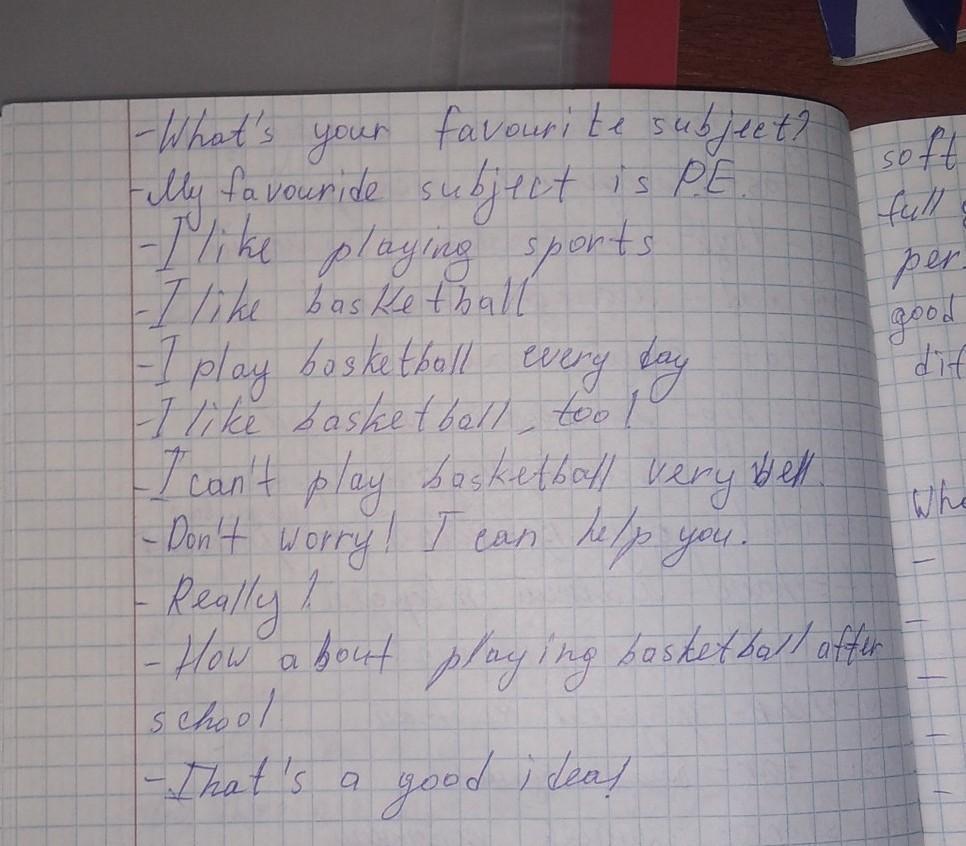 -What's your favourite subject?
-My favouride subject is P.E.
-I like playing sports
-I like basketball
-I play basketball every day
-I like basketball, too!
-I can't play basketball very well.
-Don't worry! I can help you.
- Really!
- How about playing basketball after
school
-That's a good idea!
soft
full
per.
good
dif
Wha